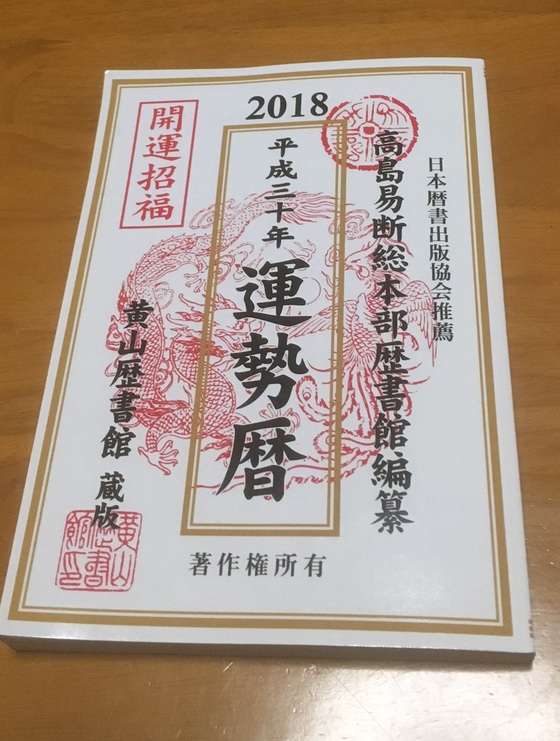 2018
日本暦書出版協会推薦
高島易断総本部歴書館編纂
平成三十年
運勢暦
開運招福
黄山歴書館 蔵版
著作権所有
黄山
歴書
館印